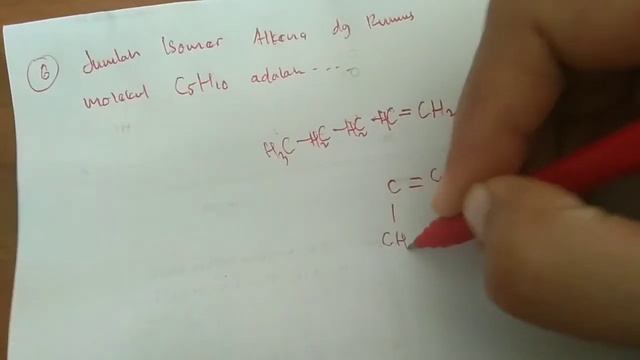 6 Jumlah Isomer Alkena dg Rumus
molekul C5H10 adalah ....
H3C-H2C-H2C-HC=CH2
C=C
|
CH